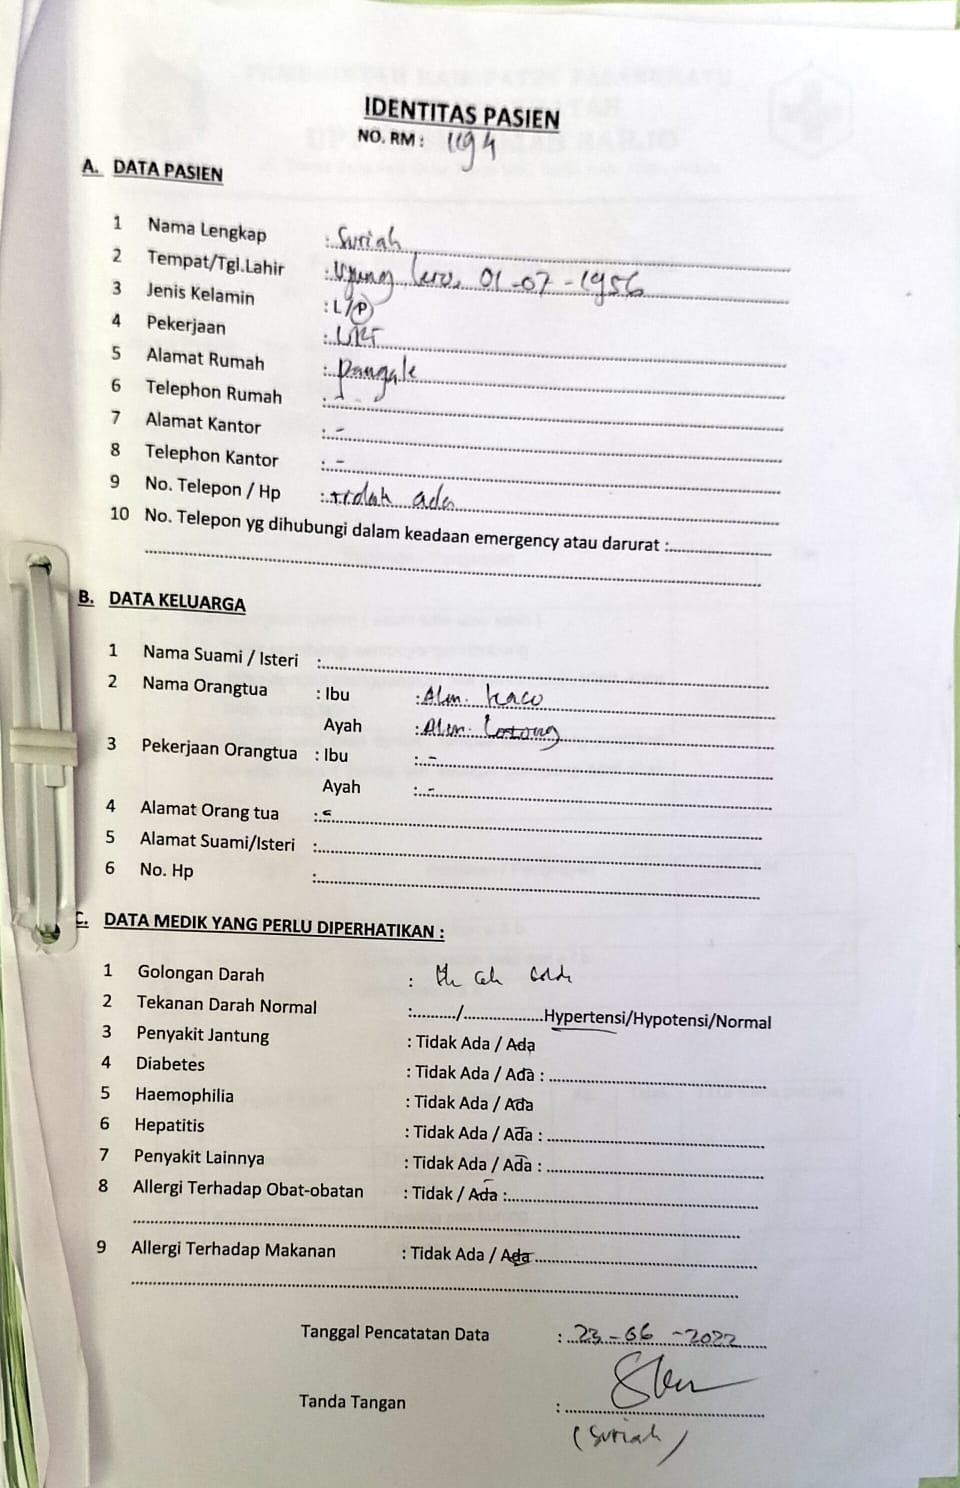 IDENTITAS PASIEN
NO. RM : 1194
A. DATA PASIEN
1 Nama Lengkap : Suriah
2 Tempat/Tgl.Lahir : Ujung Lero, 01-07-1956
3 Jenis Kelamin : L/P
4 Pekerjaan : URT
5 Alamat Rumah : Pangale
6 Telephon Rumah : -
7 Alamat Kantor : -
8 Telephon Kantor : -
9 No. Telepon / Hp : tidak ada
10 No. Telepon yg dihubungi dalam keadaan emergency atau darurat :
B. DATA KELUARGA
1 Nama Suami / Isteri :
2 Nama Orangtua : Ibu : Alm. Kaco
Ayah : Alm.
3 Pekerjaan Orangtua : Ibu : -
Ayah : -
4 Alamat Orang tua :
5 Alamat Suami/Isteri :
6 No. Hp :
C. DATA MEDIK YANG PERLU DIPERHATIKAN :
1 Golongan Darah :
2 Tekanan Darah Normal :........../...................Hypertensi/Hypotensi/Normal
3 Penyakit Jantung : Tidak Ada / Ada
4 Diabetes : Tidak Ada / Ada :
5 Haemophilia : Tidak Ada / Ada
6 Hepatitis : Tidak Ada / Ada :
7 Penyakit Lainnya : Tidak Ada / Ada :
8 Allergi Terhadap Obat-obatan : Tidak / Ada :
9 Allergi Terhadap Makanan : Tidak Ada / Ada
Tanggal Pencatatan Data : 23-06-2022
Tanda Tangan :
(Suriah)